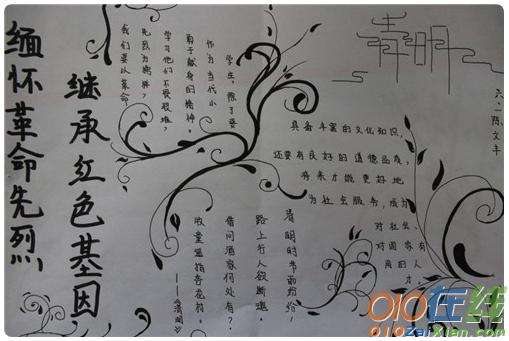 缅怀革命先烈，
继承红色基因
清明
六.一陈文丰
我们要以革命
先烈为榜样，
学习他们不畏艰难，
勇于献身的精神。
作为当代小
学生，除了要
具备丰富的文化知识，
还要有良好的道德品质，
将来才能更好地
为社会服务，成为
对社会、
对国家有
用的人
才。
清明时节雨纷纷，
路上行人欲断魂。
借问酒家何处有？
牧童遥指杏花村。
——《清明》
010在线
010ZaiXian.com